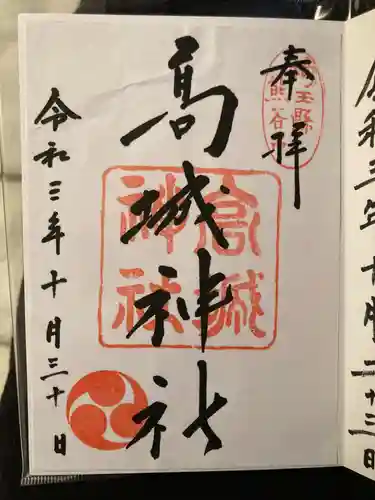 奉拝
埼玉縣
熊谷
高城神社
高城
神社
令和三年十月三十日
令和三年十月二十三日